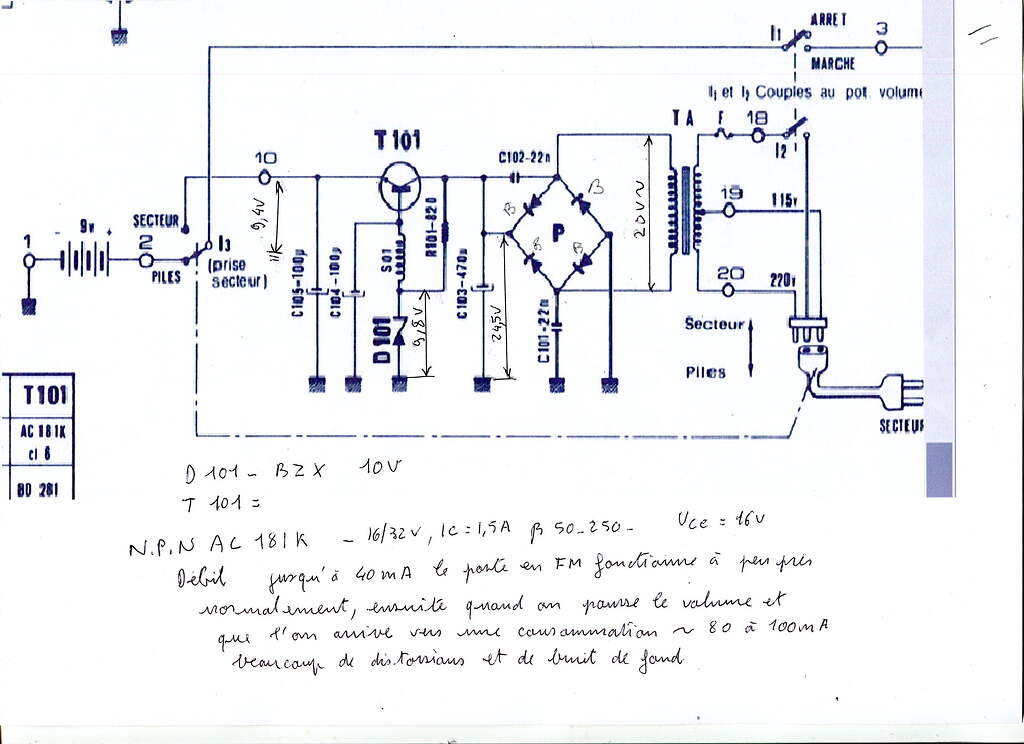 ARRET
I1
3
MARCHE
I1 et I2 Couples au pot. volume
T A
F
18
I2
T 101
10
C102-22n
B
B
20V~
19
115v
SECTEUR
9v
+
-
1
2
I3
(prise
secteur)
PILES
9,4V
C105-100µ
C104-100µ
S01
R101-820
C103-470µ
P
B
B
20
220v
D 101
9,8V
24,5V
C101-22n
Secteur
Piles
SECTEUR
T101
AC 181K
cl 6
BD 281
D 101 - BZX 10V
T 101 =
N.P.N AC 181K - 16/32V, IC = 1,5A β 50-250 - Uce = 16V
Débit jusqu'à 40mA le poste en FM fonctionne à peu près
normalement, ensuite quand on pousse le volume et
que l'on arrive vers une consommation ~ 80 à 100mA
beaucoup de distorsions et de bruit de fond